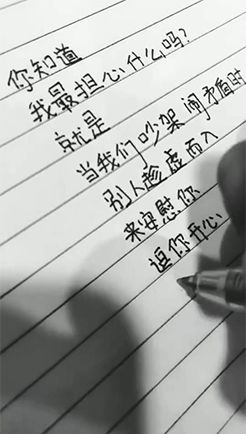 你知道
我最担心什么吗?
就是
当我们吵架闹矛盾时
别人趁虚而入
来安慰你
逗你开心